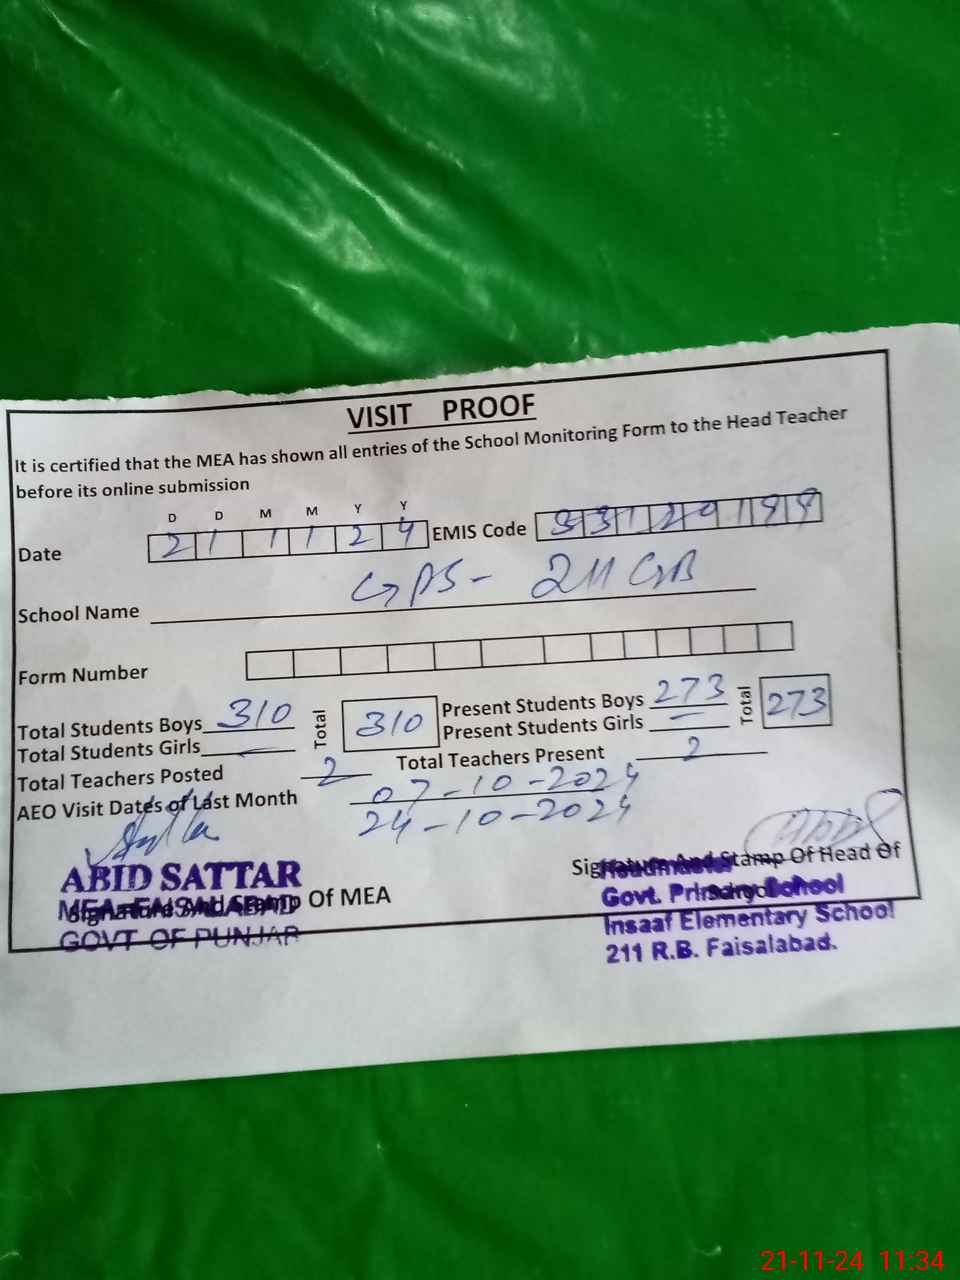 VISIT PROOF
It is certified that the MEA has shown all entries of the School Monitoring Form to the Head Teacher
before its online submission
D D M M Y Y
Date 21 11 24 EMIS Code
School Name GPS - 211 GB
Form Number
Total Students Boys 310 Total 310 Present Students Boys 273 Total 273
Total Students Girls — Present Students Girls —
Total Teachers Posted 2 Total Teachers Present 2
AEO Visit Dates of Last Month 07-10-2024
24-10-2024
ABID SATTAR
MEA FAISALABAD
GOVT OF PUNJAB
Signature And Stamp Of MEA
Signature And Stamp Of Head Of
School
Headmaster
Govt. Primary School
Insaaf Elementary School
211 R.B. Faisalabad.
21-11-24 11:34